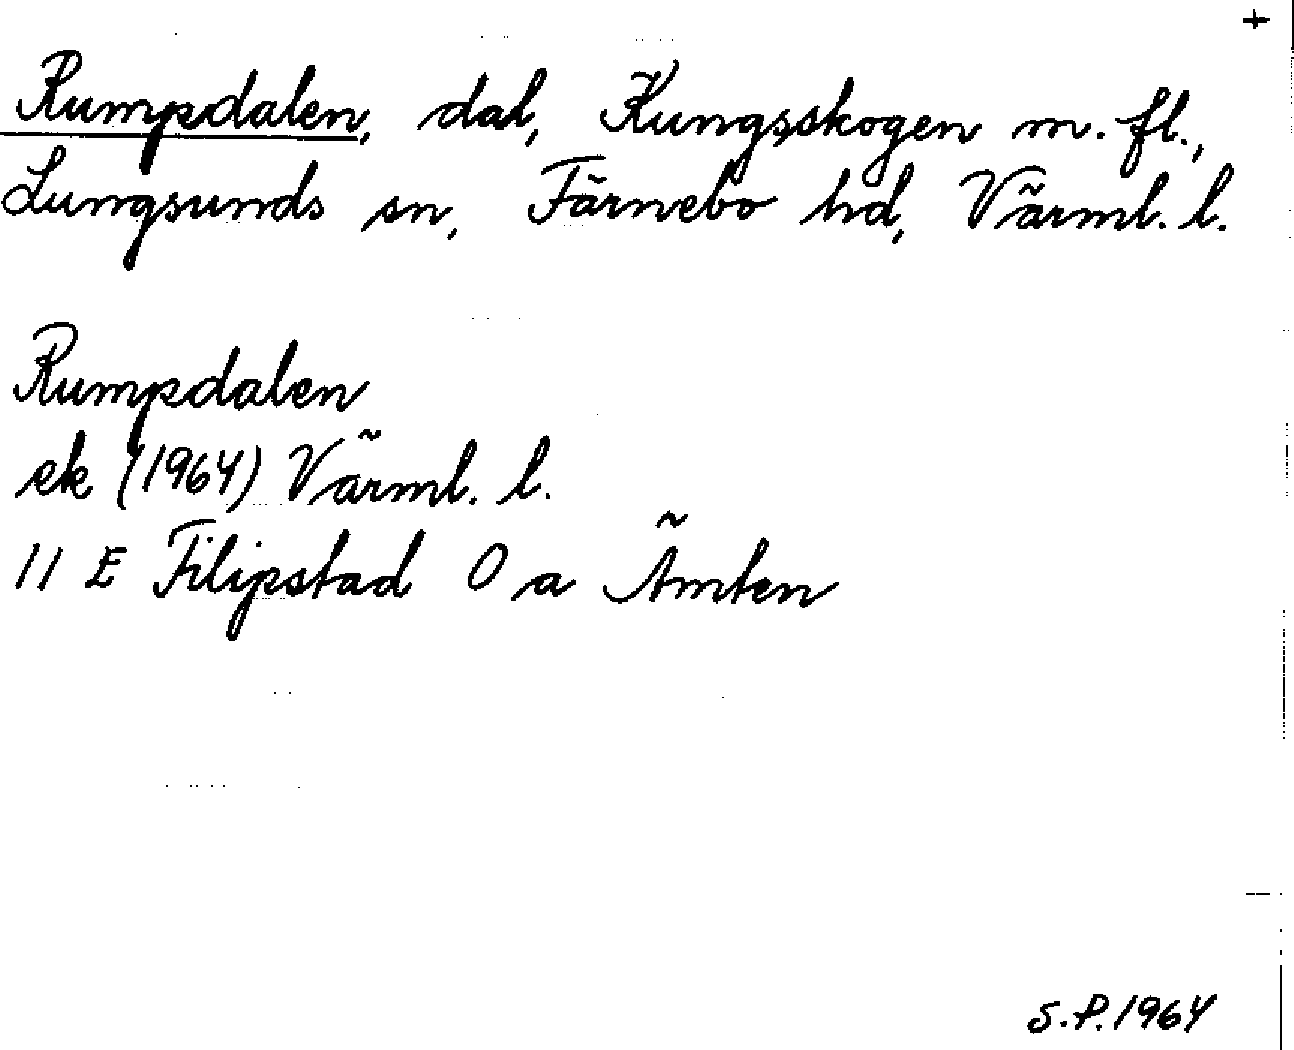 +
Rumpdalen, dal, Kungsskogen m. fl.,
Lungsunds sn, Färnebo hd, Värml. l.
Rumpdalen
ek (1964) Värml. l.
11 E Filipstad 0 a Ämten
S.P. 1964